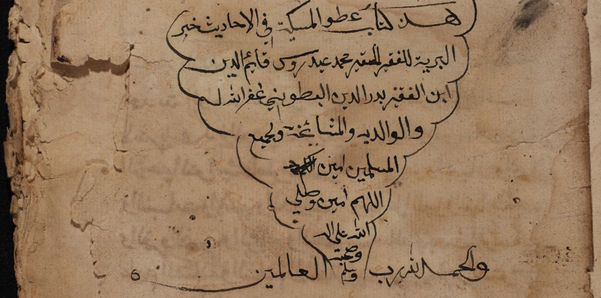 هذا كتاب عطو المسكية في الاحاديث خير
البرية للفقير الحقير محمد عيدروس قايم الدين
ابن الفقير بدر الدين البطوني غفر الله له
والوالديه والمشايخه ولجميع
المسلمين امين
اللهم امين وصلي
الله على
وصحبه وسلم
والحمد لله رب العالمين